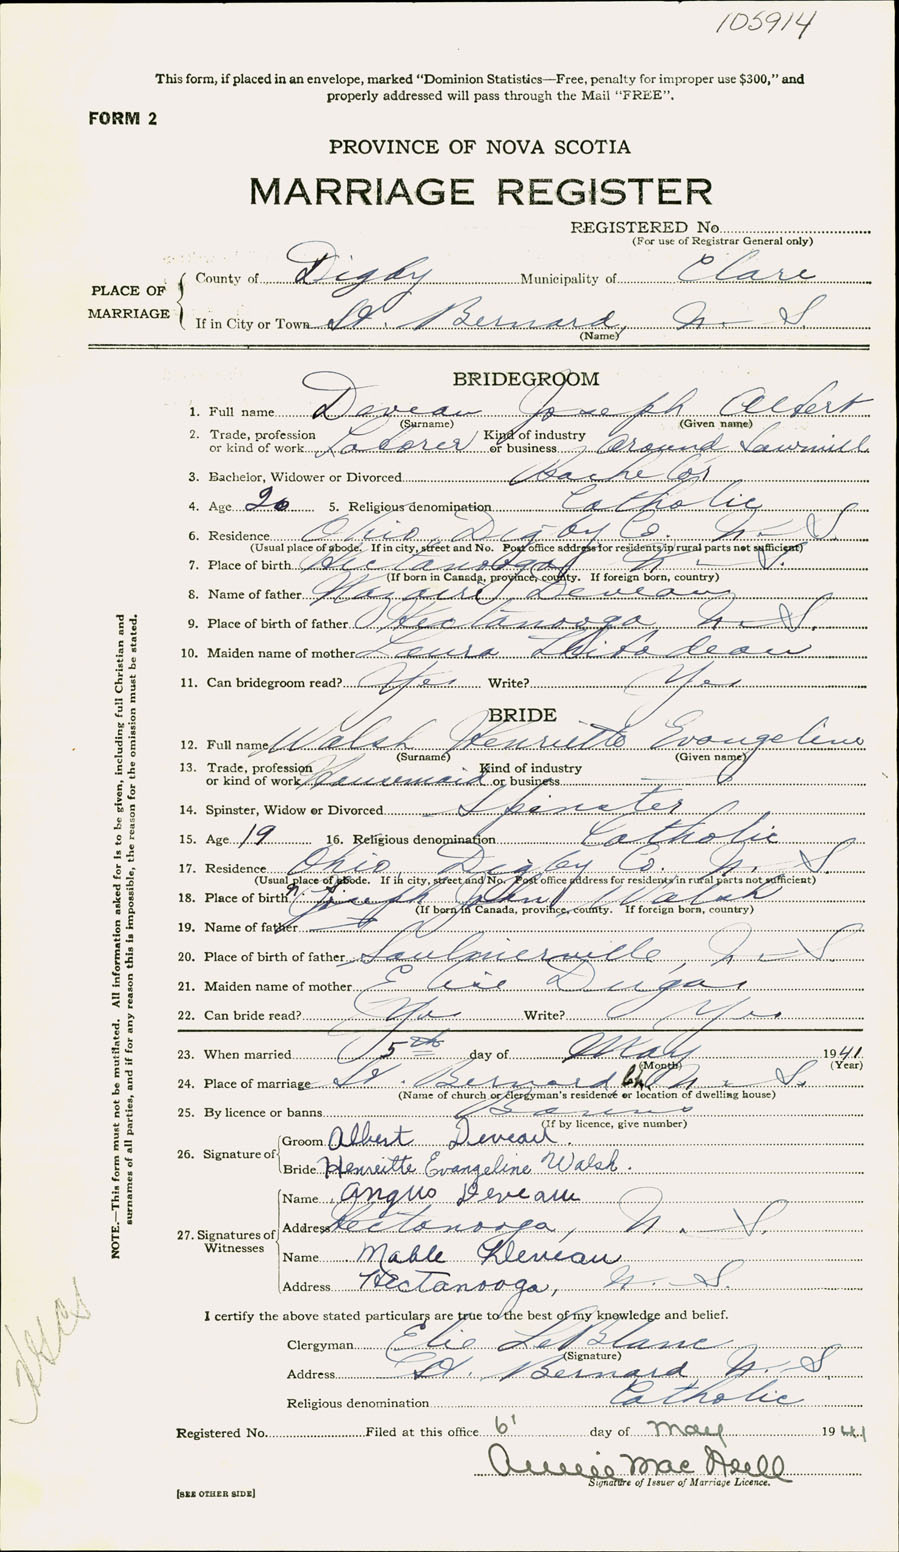 105914
This form, if placed in an envelope, marked "Dominion Statistics—Free, penalty for improper use $300," and
properly addressed will pass through the Mail "FREE".
FORM 2
PROVINCE OF NOVA SCOTIA
MARRIAGE REGISTER
REGISTERED No.
(For use of Registrar General only)
PLACE OF MARRIAGE
County of Digby Municipality of Clare
If in City or Town St. Bernard, N. S.
(Name)
BRIDEGROOM
1. Full name Deveau Joseph Albert
(Surname) (Given name)
2. Trade, profession or kind of work Laborer Kind of industry or business Around Sawmill
3. Bachelor, Widower or Divorced Bachelor
4. Age 20 5. Religious denomination Catholic
6. Residence Ohio, Digby Co. N. S.
(Usual place of abode. If in city, street and No. Post office address for residents in rural parts not sufficient)
7. Place of birth Hectanooga N. S.
(If born in Canada, province, county. If foreign born, country)
8. Name of father Nazaire Deveau
9. Place of birth of father Hectanooga N. S.
10. Maiden name of mother Laura Thibodeau
11. Can bridegroom read? Yes Write? Yes
BRIDE
12. Full name Walsh Henriette Evangeline
(Surname) (Given name)
13. Trade, profession or kind of work Housemaid Kind of industry or business
14. Spinster, Widow or Divorced Spinster
15. Age 19 16. Religious denomination Catholic
17. Residence Ohio, Digby Co. N. S.
(Usual place of abode. If in city, street and No. Post office address for residents in rural parts not sufficient)
18. Place of birth N. S. Joseph John Walsh
(If born in Canada, province, county. If foreign born, country)
19. Name of father
20. Place of birth of father Saulnierville, N. S.
21. Maiden name of mother Elsie Dugas
22. Can bride read? Yes Write? Yes
23. When married 5th day of May 1941
(Month) (Year)
24. Place of marriage St. Bernard Ch N. S.
(Name of church or clergyman's residence or location of dwelling house)
25. By licence or banns Banns
(If by licence, give number)
26. Signature of
Groom Albert Deveau.
Bride Henreitte Evangeline Walsh.
27. Signatures of Witnesses
Name Angus Deveau
Address Hectonooga, N. S.
Name Mable Deveau
Address Hectanooga, N. S.
I certify the above stated particulars are true to the best of my knowledge and belief.
Clergyman Elie LeBlanc
(Signature)
Address St. Bernard N. S.
Religious denomination Catholic
Registered No. Filed at this office 6' day of May 1941
Annie MacNeill
Signature of Issuer of Marriage Licence.
[SEE OTHER SIDE]
NOTE.—This form must not be mutilated. All information asked for is to be given, including full Christian and
surnames of all parties, and if for any reason this is impossible, the reason for the omission must be stated.